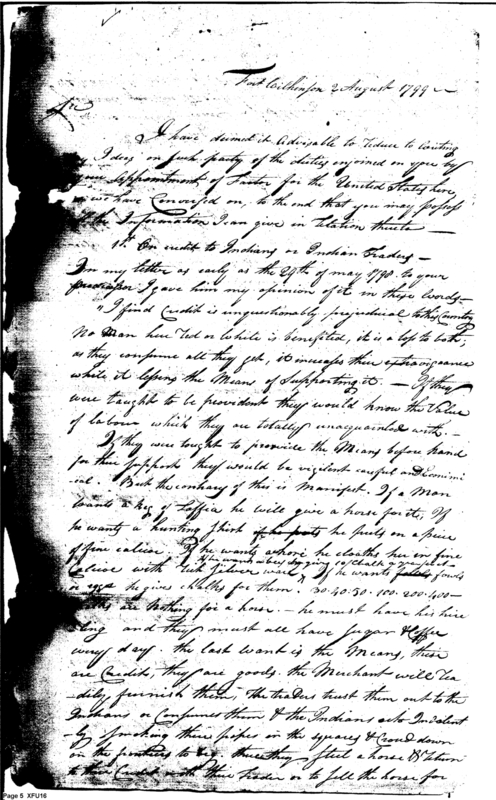 Fort Wilkinson 2 August 1799
Sir
I have deemed it advisable to reduce to writing
my Ideas on such parts of the duties enjoined on you by
your appointment of Factor for the United States here,
as we have Conversed on, to the end that you may possess
all the Information I can give in relation thereto
1st. On credit to Indians or Indian Traders
In my letter as early as the 29th of may 1798. to your
predecessor I gave him my opinion of it in these words
"I find Credit is unquestionably prejudicial to this Country
No Man here Red or White is benefited, it is a loss to both;
as they consume all they get, it increases their extravagance
while it lessens the Means of Supporting it. — If they
were taught to be provident they would know the Value
of labour which they are totally unacquainted with. —
If they were taught to provide the Means before hand
for their support they would be vigilent careful and Oeconomi
cal. But the contrary of this is Manifest. If a Man
wants a keg of Taffia he will give a horse for it, If
he wants a hunting shirt he puts on a piece
of fine calico. If he wants a whore he cloaths her in fine
Calico with silver If he wants fowls
or eggs he gives chalks for them. 30. 40. 50. 100. 200. 400 —
are nothing for a horse. — he must have his hire
ling and they must all have Sugar & Coffee
every day. the last want is the Means, these
are Credit, they are goods. the Merchant will rea
dily furnish them, the traders trust them out to the
Indians or Consumes them & the Indians
by smoking their pipes in the squares & Croud down
on the frontiers to steal a horse & return
to their Credit with their trader or to sell the horse for
Page 5 XFU16